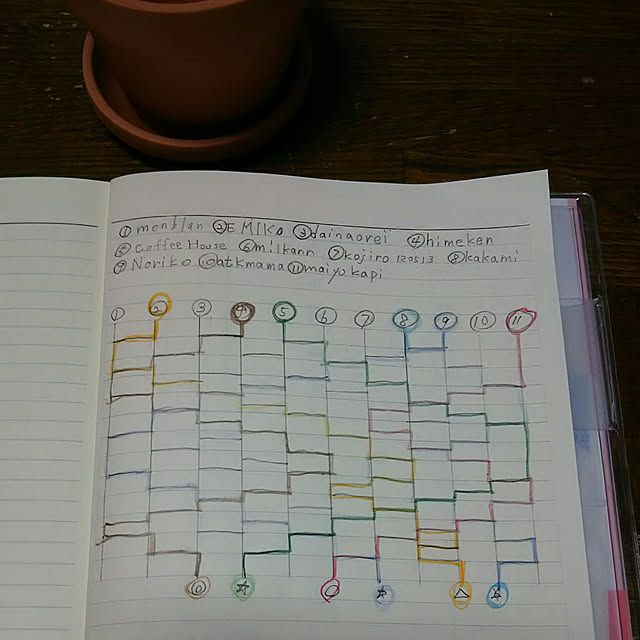 ① monblan ② EMIKO ③ dainaorei ④ himeken
⑤ Coffee House ⑥ milkann ⑦ kojiro 120513 ⑧ kakami
⑨ Noriko ⑩ atkmama ⑪ maiyukapi
① ② ③ ④ ⑤ ⑥ ⑦ ⑧ ⑨ ⑩ ⑪